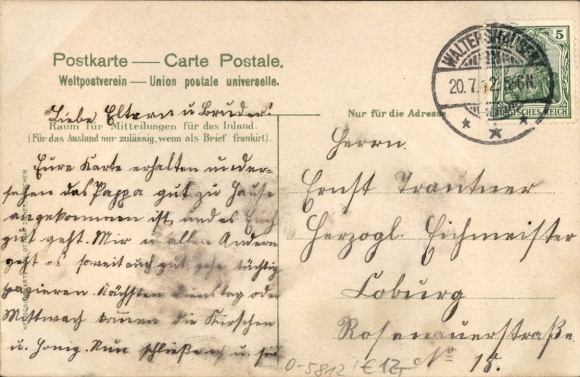 Postkarte — Carte Postale.
Weltpostverein — Union postale universelle.
Liebe Eltern u Bruder
Raum für Mitteilungen für das Inland.
(Für das Ausland nur zulässig, wenn als Brief frankirt).
Eure Karte erhalten u. er-
sehen das Pappa gut zu Hause
angekommen ist und es Euch
gut geht. Mir u allen Andern
geht es soweit auch gut gehe tüchtig
spazieren Nächsten Dienstag oder
Mittwoch kommen die Kirschen
u. Honig. Nun schließe ich u.
Nur für die Adresse
Herrn
Ernst Trautner
Herzogl. Eichmeister
Coburg
Rosenauerstraße
No 15.
WALTERSHAUSEN
20.7.12. 5-6N
5
DEUTSCHES REICH
0-5812 / €12,-